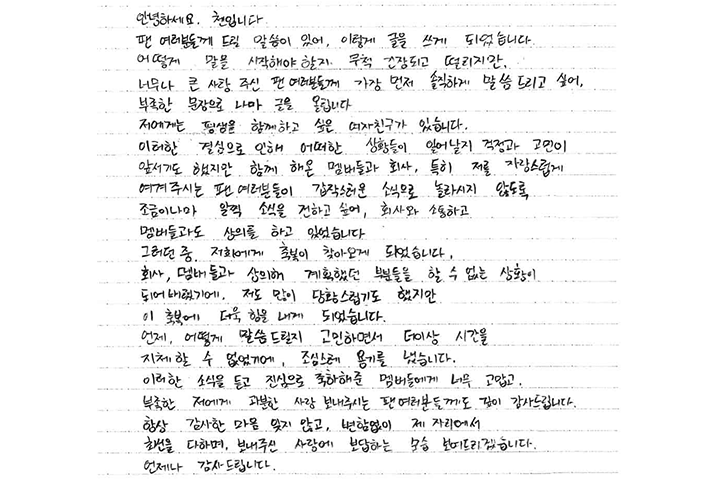 안녕하세요. 첸입니다.
팬 여러분들께 드릴 말씀이 있어, 이렇게 글을 쓰게 되었습니다.
어떻게 말을 시작해야 할지 무척 긴장되고 떨리지만,
너무나 큰 사랑 주신 팬 여러분들께 가장 먼저 솔직하게 말씀드리고 싶어,
부족한 문장으로 나마 글을 올립니다
저에게는 평생을 함께하고 싶은 여자친구가 있습니다.
이러한 결심으로 인해 어떠한 상황들이 일어날지 걱정과 고민이
앞서기도 했지만 함께 해온 멤버들과 회사, 특히 저를 자랑스럽게
여겨주시는 팬 여러분들이 갑작스러운 소식으로 놀라시지 않도록
조금이나마 일찍 소식을 전하고 싶어, 회사와 소통하고
멤버들과도 상의를 하고 있었습니다
그러던 중, 저희에게 축복이 찾아오게 되었습니다.
회사, 멤버들과 상의해 계획했던 부분들을 할 수 없는 상황이
되어버렸기에, 저도 많이 당황스럽기도 했지만
이 축복에 더욱 힘을 내게 되었습니다.
언제, 어떻게 말씀드릴지 고민하면서 더이상 시간을
지체할 수 없었기에, 조심스레 용기를 냈습니다.
이러한 소식을 듣고 진심으로 축하해준 멤버들에게 너무 고맙고,
부족한 저에게 과분한 사랑 보내주시는 팬 여러분들께도 깊이 감사드립니다.
항상 감사한 마음 잊지 않고, 변함없이 제 자리에서
최선을 다하며, 보내주신 사랑에 보답하는 모습 보여드리겠습니다.
언제나 감사드립니다.